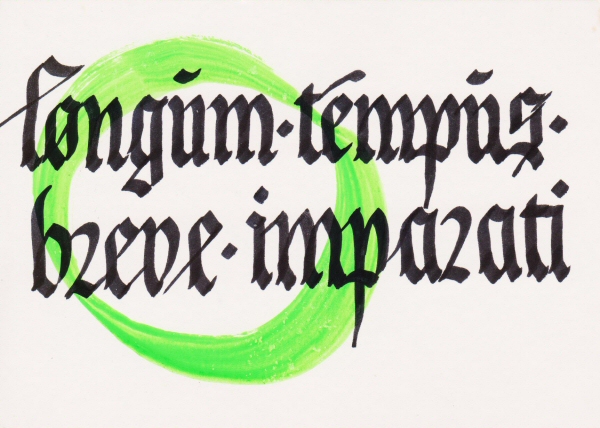 longum·tempus·
breve·imparati